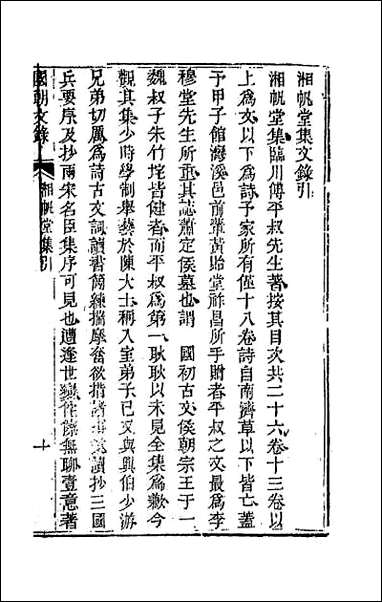 湘帆堂集文錄引
湘帆堂集臨川傅平叔先生著按其目次共二十六卷十三卷以
上爲文以下爲詩予家所有僅十八卷詩自南濟草以下皆亡蓋
予甲子館滸溪邑前輩黃貽堂祥昌所手贈者平叔之文最爲李
穆堂先生所重其誌蕭定侯墓也謂　國初古文侯朝宗王于一
魏叔子朱竹垞皆健者而平叔爲第一耿耿以未見全集爲歉今
觀其集少時學制舉藝於陳大士稱入室弟子已又與興伯少游
兄弟切厲爲詩古文詞讀書簡練揣摩奮欲措諸讀抄三國
兵要序及抄兩宋名臣集序可見也遭逢世變侘傺無聊壹意著
國朝文錄
湘帆堂集引
十